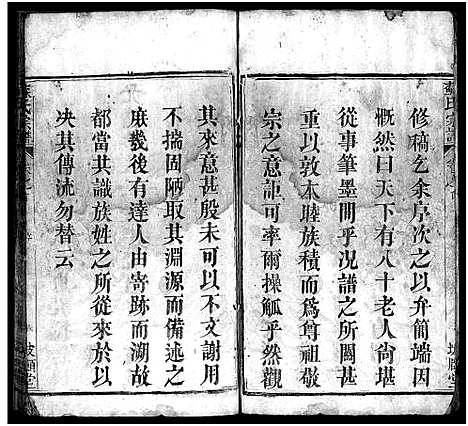 修稿乞余序次之以弁簡端因
慨然曰天下有八十老人尚堪
從事筆墨間乎況譜之所關甚
重以敦本睦族積而爲尊祖敬
宗之意詎可率爾操觚乎然觀
其來意甚殷未可以不文謝用
不揣固陋取其淵源而備述之
庶幾後有達人由寄跡而溯故
都當共識族姓之所從來於以
决其傳流勿替云